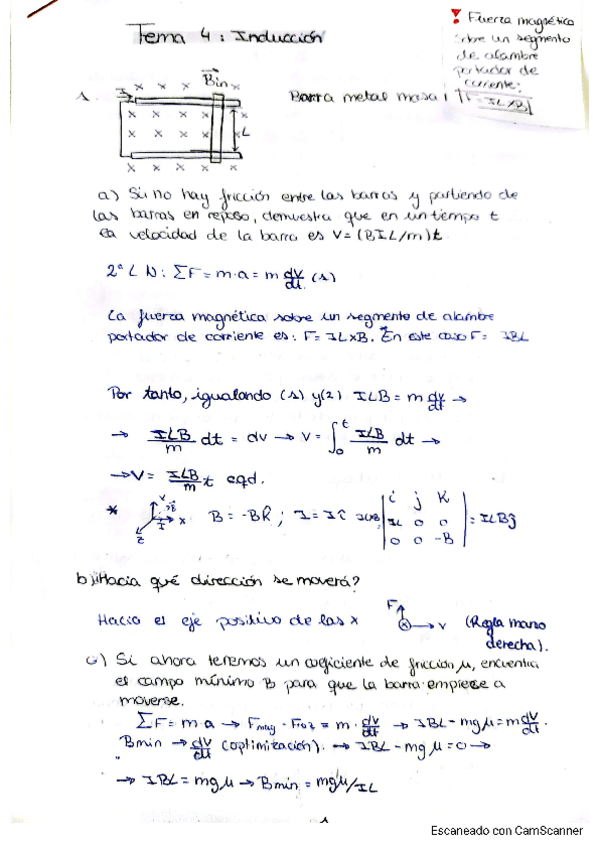 Tema 4: Inducción
❢ Fuerza magnética
sobre un segmento
de alambre
portador de
corriente:
F = IL×B
1.
I
Bin
× × × ×
× × × ×
× × × ×
× × ×
× × × ×
L
Barra metal masa
a) Si no hay fricción entre las barras y partiendo de
las barras en reposo, demuestra que en un tiempo t
la velocidad de la barra es V = (BIL/m)t
2ª L N: ΣF = m·a = m dv/dt (1)
La fuerza magnética sobre un segmento de alambre
portador de corriente es: F = IL×B. En este caso F = IBL
Por tanto, igualando (1) y (2) ILB = m dv/dt →
→ ILB/m dt = dv → V = ∫₀ᵗ ILB/m dt →
→ V = ILB/m t cqd.
* Y B I X Z B = -Bk̂ ; I = Iî |i j k; IL 0 0; 0 0 -B| = ILBĵ
b) ¿Hacia qué dirección se moverá?
Hacia el eje positivo de las x F v (Regla mano
derecha).
c) Si ahora tenemos un coeficiente de fricción μ, encuentra
el campo mínimo B para que la barra empiece a
moverse.
ΣF = m·a → Fmag - Froz = m·dv/dt → IBL - mgμ = m dv/dt.
Bmin → dv/dt (optimización). → IBL - mgμ = 0 →
→ IBL = mgμ → Bmin = mgμ/IL
1
Escaneado con CamScanner